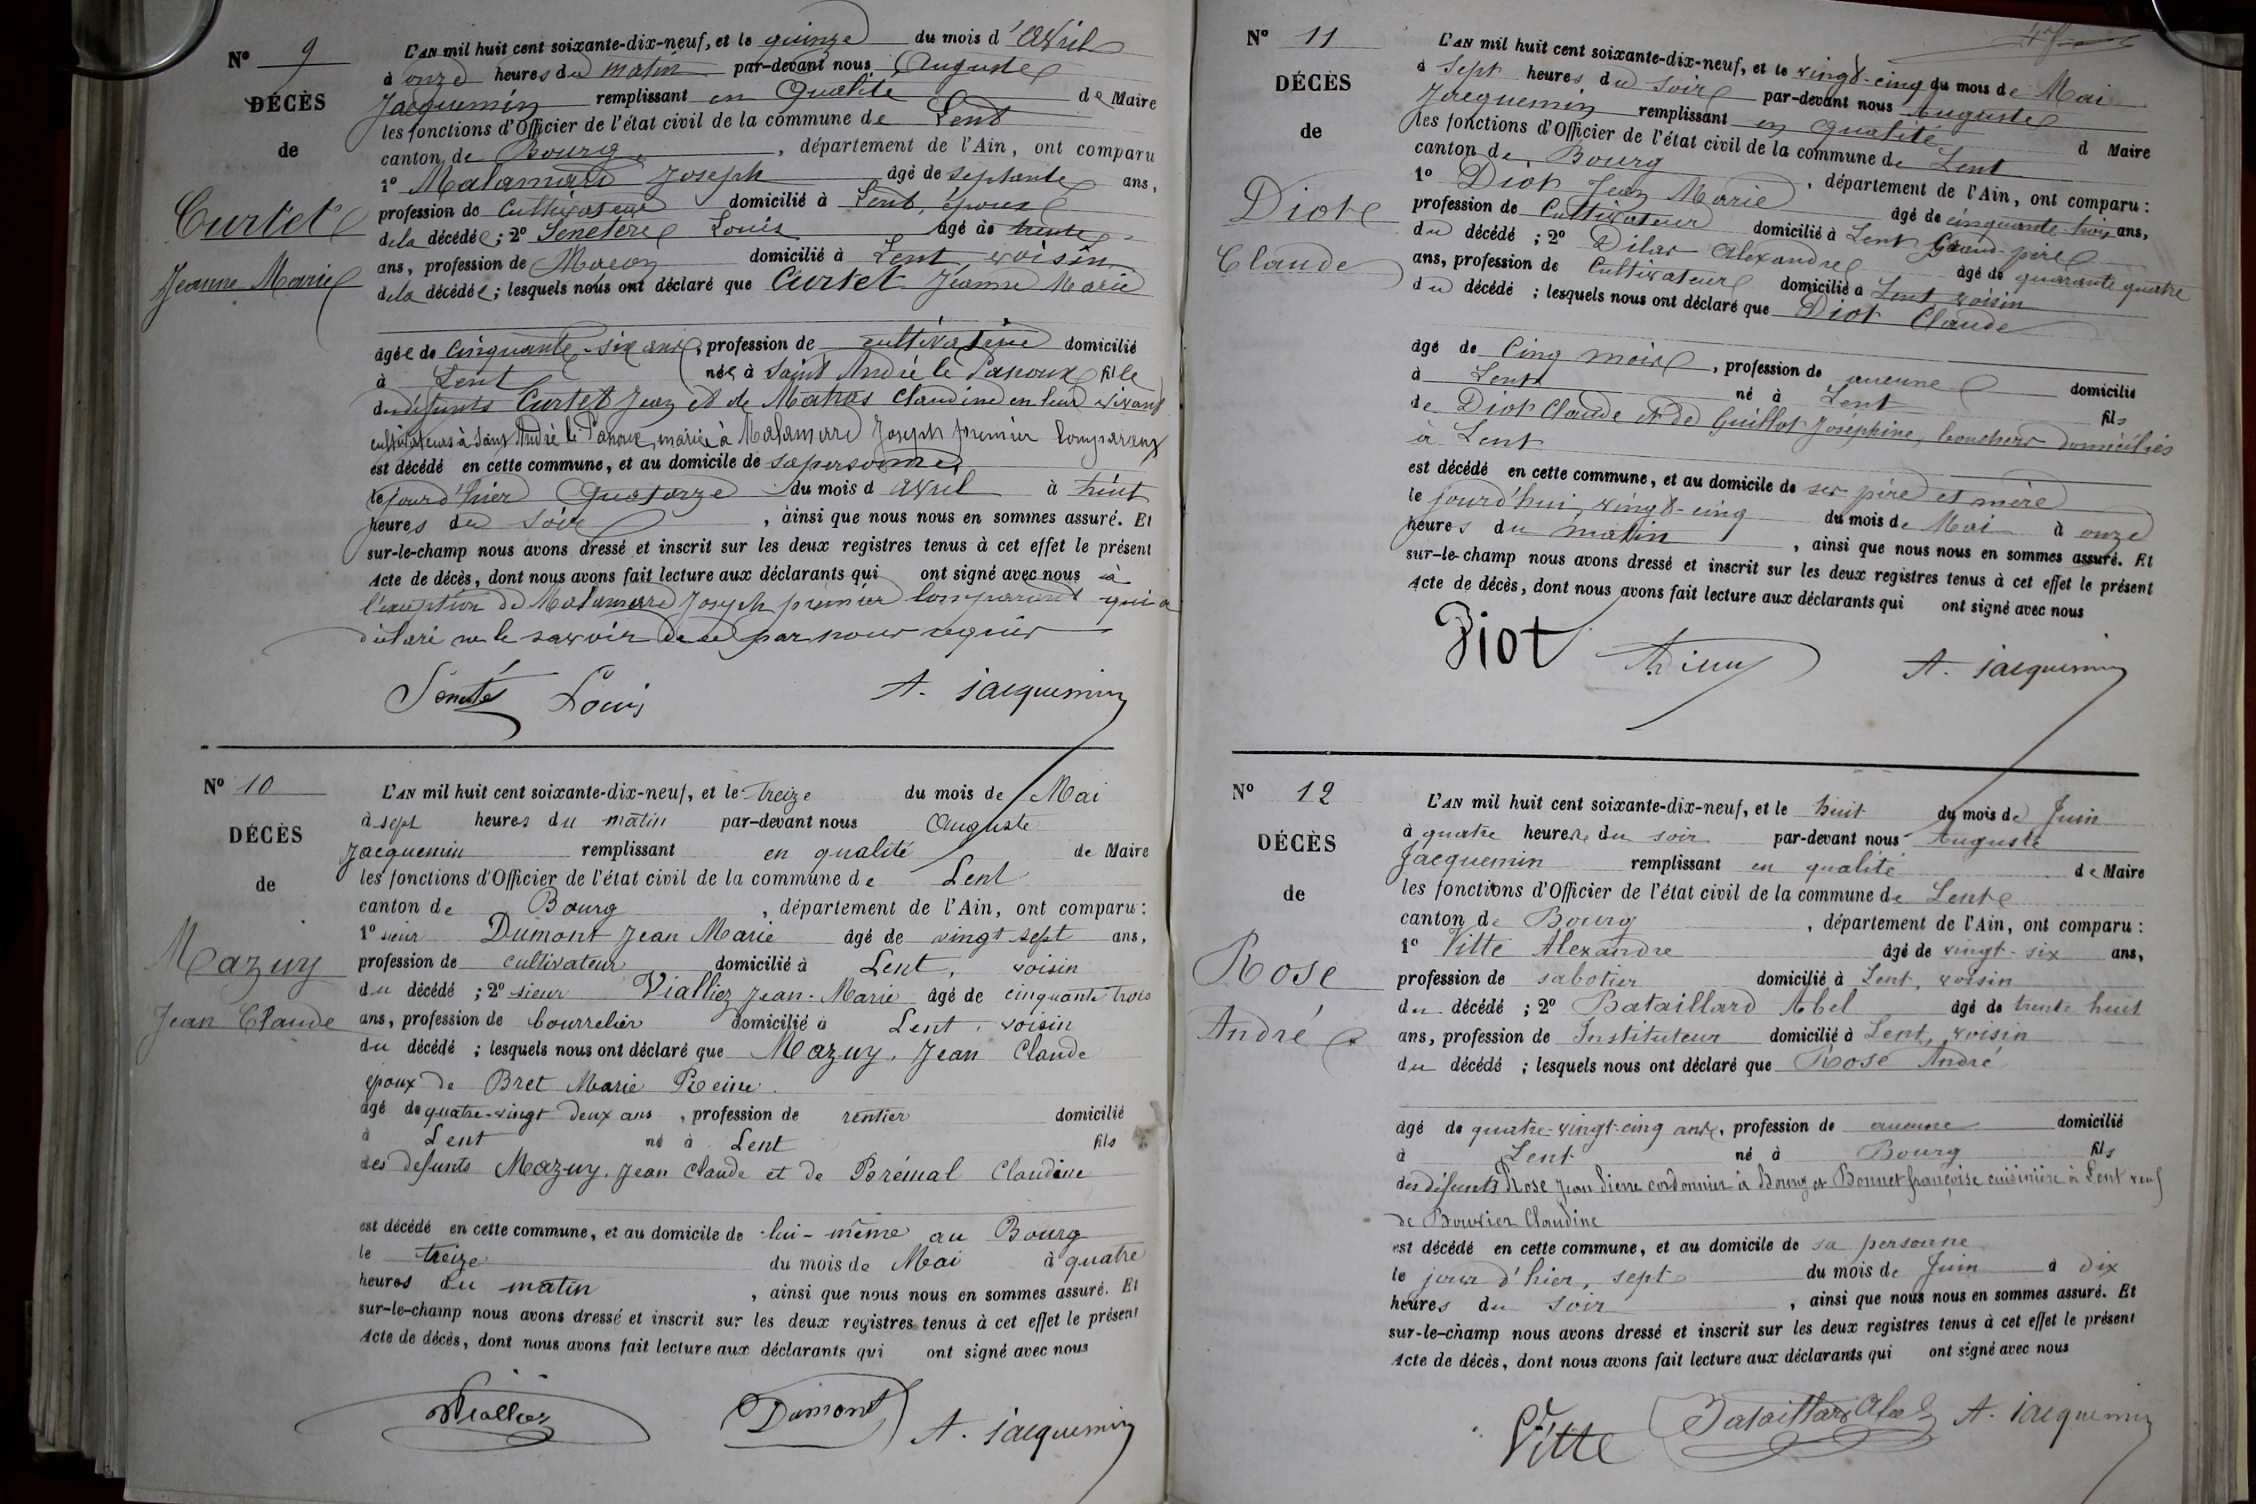 Nº 9
DÉCÈS
de
Curtet
Jeanne Marie
L'AN mil huit cent soixante-dix-neuf, et le quinze du mois d'Avril
à onze heures du matin par-devant nous Auguste
Jacquemin remplissant en Qualité de Maire
les fonctions d'Officier de l'état civil de la commune de Lent
canton de Bourg, département de l'Ain, ont comparu
1º Malamard Joseph âgé de septante ans,
profession de Cultivateur domicilié à Lent, époux
de la décédée; 2º Louis âgé de trente
ans, profession de Macon domicilié à Lent voisin
de la décédée; lesquels nous ont déclaré que Curtet Jeanne Marie
âgée de Cinquante-six ans, profession de cultivatrice domicilié
à Lent née à Saint André le Panoux fille
des défunts Curtet Jean et de Matras Claudine en leur vivant
cultivateurs à Saint André le Panoux, mariée à Malamard Joseph premier Comparant
est décédé en cette commune, et au domicile de sa personne
le jour d'hier Quatorze du mois d avril à huit
heures du soir, ainsi que nous nous en sommes assuré. Et
sur-le-champ nous avons dressé et inscrit sur les deux registres tenus à cet effet le présent
Acte de décès, dont nous avons fait lecture aux déclarants qui ont signé avec nous à
l'exception de Malamard Joseph premier Comparant qui a
déclaré ne le savoir de ce par nous requis
Louis A. Jacquemin
Nº 10
DÉCÈS
de
Mazuy
Jean Claude
L'AN mil huit cent soixante-dix-neuf, et le treize du mois de Mai
à sept heures du matin par-devant nous Auguste
Jacquemin remplissant en qualité de Maire
les fonctions d'Officier de l'état civil de la commune de Lent
canton de Bourg, département de l'Ain, ont comparu:
1º sieur Dumont Jean Marie âgé de vingt sept ans,
profession de cultivateur domicilié à Lent, voisin
du décédé; 2º sieur Vialliez Jean-Marie âgé de cinquante trois
ans, profession de bourrelier domicilié à Lent, voisin
du décédé; lesquels nous ont déclaré que Mazuy, Jean Claude
époux de Bret Marie Reine
âgé de quatre-vingt deux ans, profession de rentier domicilié
à Lent né à Lent fils
des défunts Mazuy, Jean Claude et de Claudine
est décédé en cette commune, et au domicile de lui-même au Bourg
le treize du mois de Mai à quatre
heures du matin, ainsi que nous nous en sommes assuré. Et
sur-le-champ nous avons dressé et inscrit sur les deux registres tenus à cet effet le présent
Acte de décès, dont nous avons fait lecture aux déclarants qui ont signé avec nous
Viallier Dumont A. Jacquemin
Nº 11
DÉCÈS
de
Diot
Claude
L'AN mil huit cent soixante-dix-neuf, et le vingt-cinq du mois de Mai
à Sept heures du soir par-devant nous Auguste
Jacquemin remplissant en qualité d Maire
les fonctions d'Officier de l'état civil de la commune de Lent
canton de Bourg, département de l'Ain, ont comparu:
1º Diot Jean Marie âgé de cinquante-trois ans,
profession de Cultivateur domicilié à Lent Grand-père
du décédé; 2º Alexandre âgé de quarante quatre
ans, profession de Cultivateur domicilié à Lent, voisin
du décédé; lesquels nous ont déclaré que Diot Claude
âgé de Cinq mois, profession de aucune domicilié
à Lent né à Lent fils
de Diot Claude et de Guillot Joséphine, bouchers domiciliés
à Lent
est décédé en cette commune, et au domicile de ses père et mère
le jourd'hui, vingt-cinq du mois de Mai à onze
heures du matin, ainsi que nous nous en sommes assuré. Et
sur-le-champ nous avons dressé et inscrit sur les deux registres tenus à cet effet le présent
Acte de décès, dont nous avons fait lecture aux déclarants qui ont signé avec nous
Diot A. Jacquemin
Nº 12
DÉCÈS
de
Rose
André
L'AN mil huit cent soixante-dix-neuf, et le huit du mois de Juin
à quatre heures du soir par-devant nous Auguste
Jacquemin remplissant en qualité de Maire
les fonctions d'Officier de l'état civil de la commune de Lent
canton de Bourg, département de l'Ain, ont comparu:
1º Vitte Alexandre âgé de vingt-six ans,
profession de sabotier domicilié à Lent, voisin
du décédé; 2º Bataillard Abel âgé de trente huit
ans, profession de Instituteur domicilié à Lent, voisin
du décédé; lesquels nous ont déclaré que Rose André
âgé de quatre-vingt-cinq ans, profession de aucune domicilié
à Lent né à Bourg fils
des défunts Rose Jean Pierre cordonnier à Bourg et Bonnet françoise cuisinière à Lent veuf
de Bouvier Claudine
est décédé en cette commune, et au domicile de sa personne
le jour d'hier, sept du mois de Juin à dix
heures du soir, ainsi que nous nous en sommes assuré. Et
sur-le-champ nous avons dressé et inscrit sur les deux registres tenus à cet effet le présent
Acte de décès, dont nous avons fait lecture aux déclarants qui ont signé avec nous
Vitte Bataillard Abel A. Jacquemin